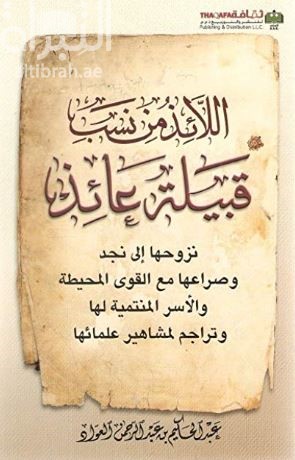 ثقافة THAQAFA
للنشر والتوزيع ذ.م.م
Publishing & Distribution L.L.C.
ltibrah.ae
اللائذ من نسب
قبيلة عائذ
نزوحها إلى نجد
وصراعها مع القوى المحيطة
والأسر المنتمية لها
وتراجم لمشاهير علمائها
عبد الحكيم بن عبد الرحمن العواد